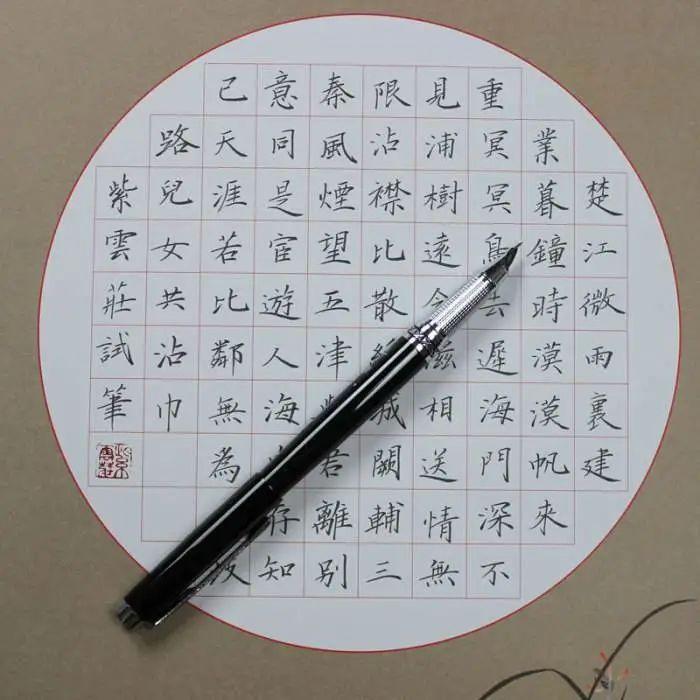 楚江微雨裏建
業暮鐘時漠漠帆來
重冥冥鳥去遲海門深不
見浦樹遠滋相送情無
限沾襟比散城闕輔三
秦風煙望五津君離別
意同是宦遊人海存知
已天涯若比鄰無為
路兒女共沾巾
紫雲莊試筆